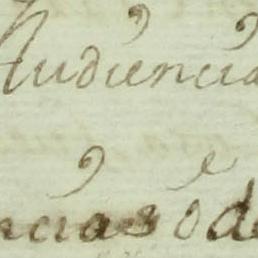 Audiencia
ncias ó de